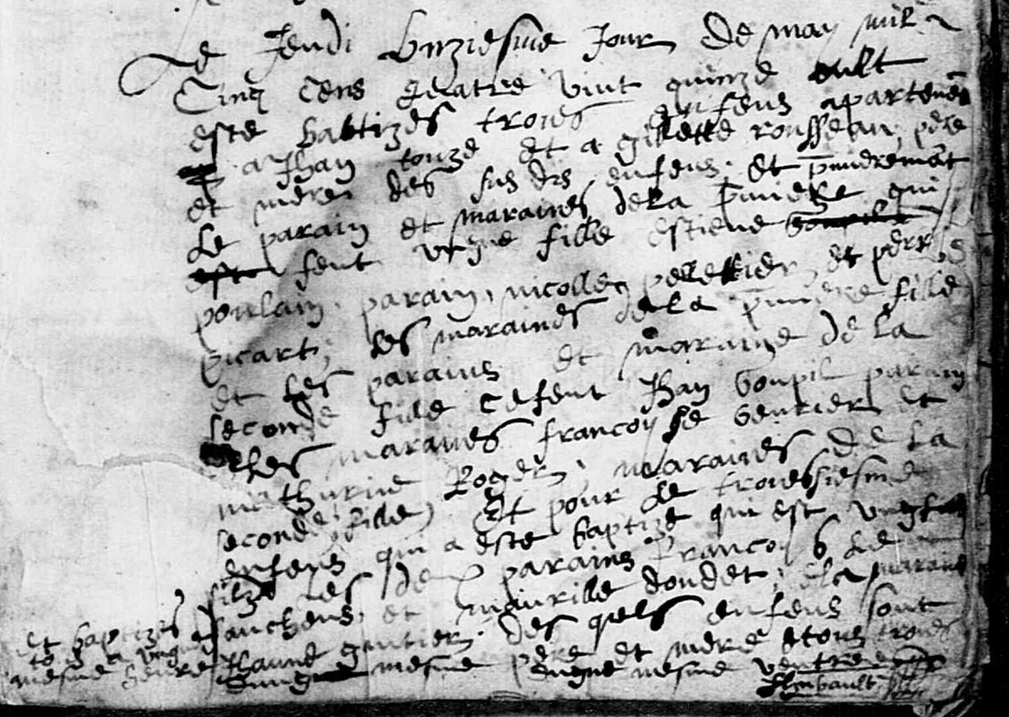 Le Jeudi unziesme Jour de may mil
Cinq cens quatre vint quinze oult
este babtizes troies enfens apartenes
a Jhan touze et a gillette rousseau pere
et mere des sus dis enfens, et premierement
Le parain et maraines de la premiere qui
feut vgne fille estiene
poulain, parain, nicolle pelletier et perrine
picart, les maraines de la premiere fille
et les parains et maraine de la
seconde fille ce feut Jhan Goupil parain
les maraines francoyse Gentier et
mathurine Roger, maraines de la
seconde fille, Et pour le troiessiesme
enfens qui a este baptize qui est vng
filz les de parains francoys
et maurille doudet, et la maraine
Jhanne gentier, des quels enfens sont
dung mesme pere et mere et tous troies
dugne mesme ventre
et baptizes
mesme heure